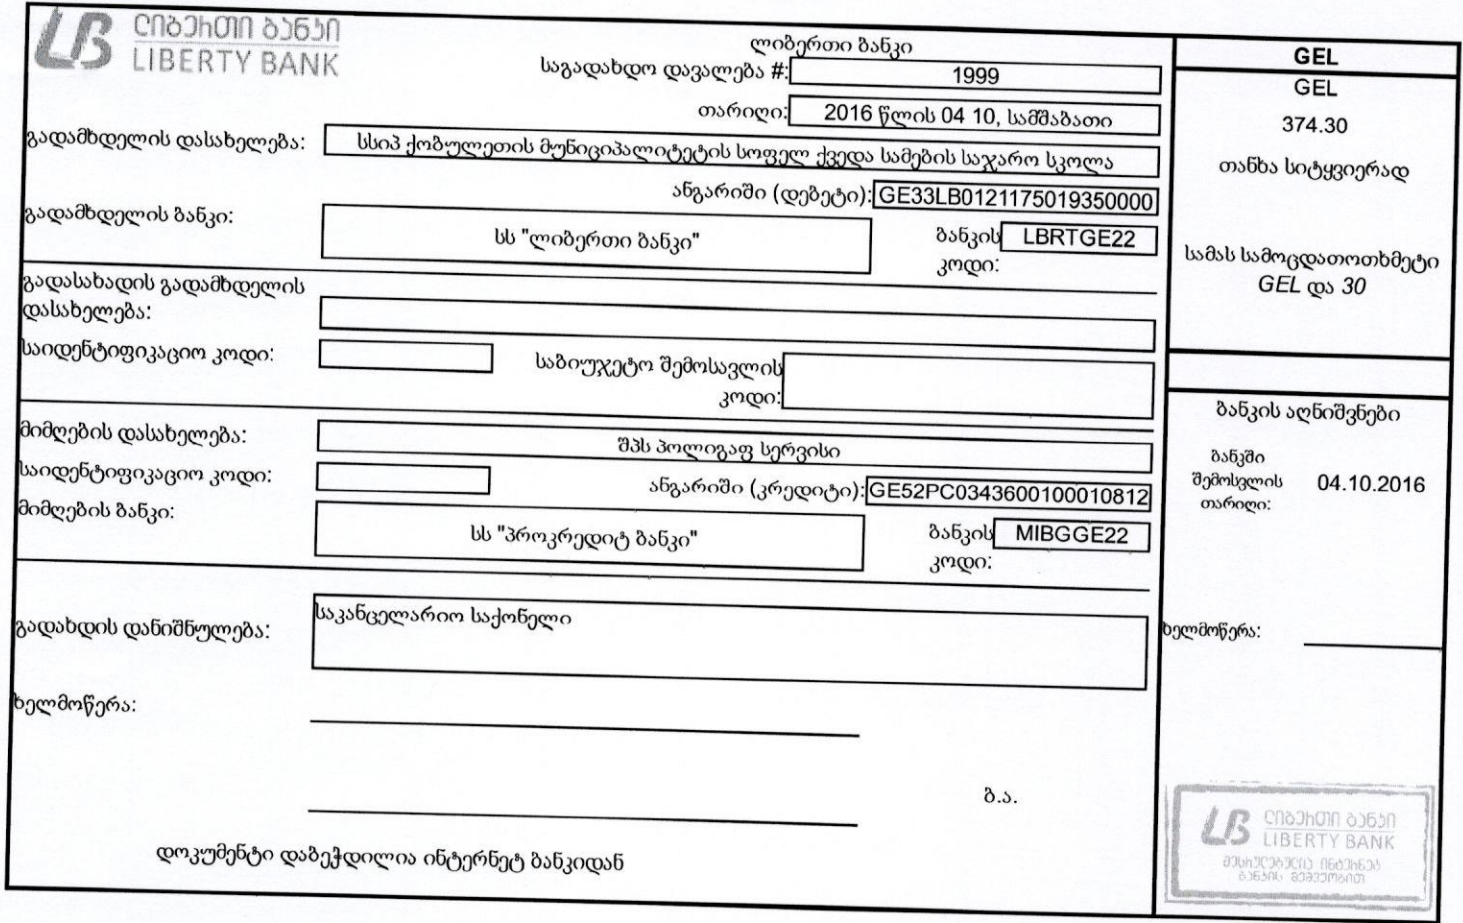 ლიბერთი ბანკი
LIBERTY BANK
ლიბერთი ბანკი
საგადახდო დავალება #: 1999
თარიღი: 2016 წლის 04 10, სამშაბათი
გადამხდელის დასახელება: სსიპ ქობულეთის მუნიციპალიტეტის სოფელ ქვედა სამების საჯარო სკოლა
ანგარიში (დებეტი): GE33LB0121175019350000
გადამხდელის ბანკი: სს "ლიბერთი ბანკი" ბანკის კოდი: LBRTGE22
გადასახადის გადამხდელის
დასახელება:
საიდენტიფიკაციო კოდი: საბიუჯეტო შემოსავლის
კოდი:
მიმღების დასახელება: შპს პოლიგაფ სერვისი
საიდენტიფიკაციო კოდი: ანგარიში (კრედიტი): GE52PC0343600100010812
მიმღების ბანკი: სს "პროკრედიტ ბანკი" ბანკის კოდი: MIBGGE22
გადახდის დანიშნულება: საკანცელარიო საქონელი
ხელმოწერა:
ბ.ა.
დოკუმენტი დაბეჭდილია ინტერნეტ ბანკიდან
GEL
GEL
374.30
თანხა სიტყვიერად
სამას სამოცდათოთხმეტი
GEL და 30
ბანკის აღნიშვნები
ბანკში
შემოსვლის 04.10.2016
თარიღი:
ხელმოწერა:
ლიბერთი ბანკი
LIBERTY BANK
შესრულებულია ინტერნეტ
ბანკის მეშვეობით